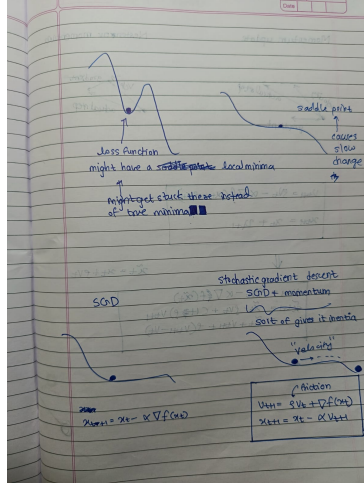 Date
saddle point
causes
slow
change
loss function
might have a local minima
might get stuck there instead
of true minima
stochastic gradient descent
SGD
SGD + momentum
sort of gives it inertia
"velocity"
friction
x_{t+1} = x_t - α ∇f(x_t)
v_{t+1} = ρv_t + ∇f(x_t)
x_{t+1} = x_t - α v_{t+1}